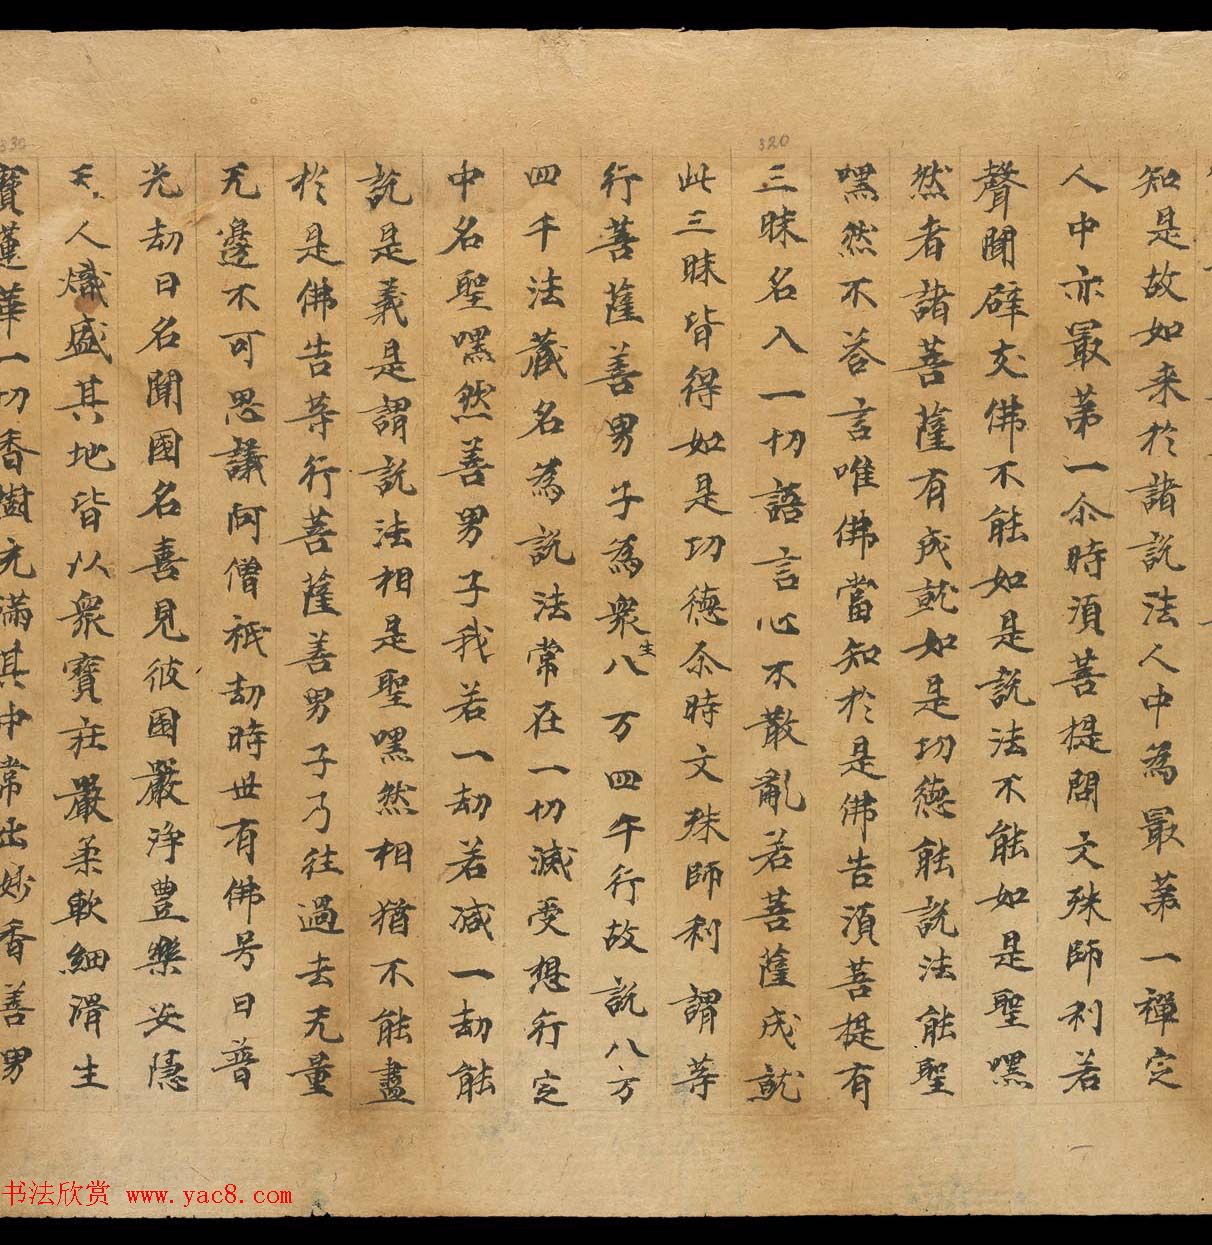 320
330
知是故如来於諸説法人中為最苐一禪定
人中亦最苐一尒時湏菩提問文殊師利若
聲聞辟支佛不能如是説法不能如是聖嘿
然者諸菩薩有成就如是功德能説法能聖
嘿然不荅言唯佛當知於是佛告湏菩提有
三昧名入一切語言心不散亂若菩薩成就
此三昧皆得如是功德尒時文殊師利謂等
行菩薩善男子為衆生八万四千行故説八万
四千法藏名為説法常在一切滅受想行定
中名聖嘿然善男子我若一劫若减一劫能
説是義是謂説法相是聖嘿然相猶不能盡
於是佛告等行菩薩善男子乃往過去无量
无邊不可思議阿僧祇劫時世有佛号曰普
光劫曰名聞國名喜見彼國嚴淨豊樂安隱
天人熾盛其地皆以衆寶莊嚴柔軟細滑生
寶蓮華一切香樹充滿其中常出妙香善男
书法欣赏 www.yac8.com